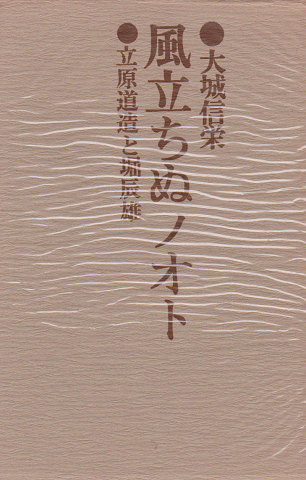 ●大城信栄
風立ちぬノオト
●立原道造と堀辰雄